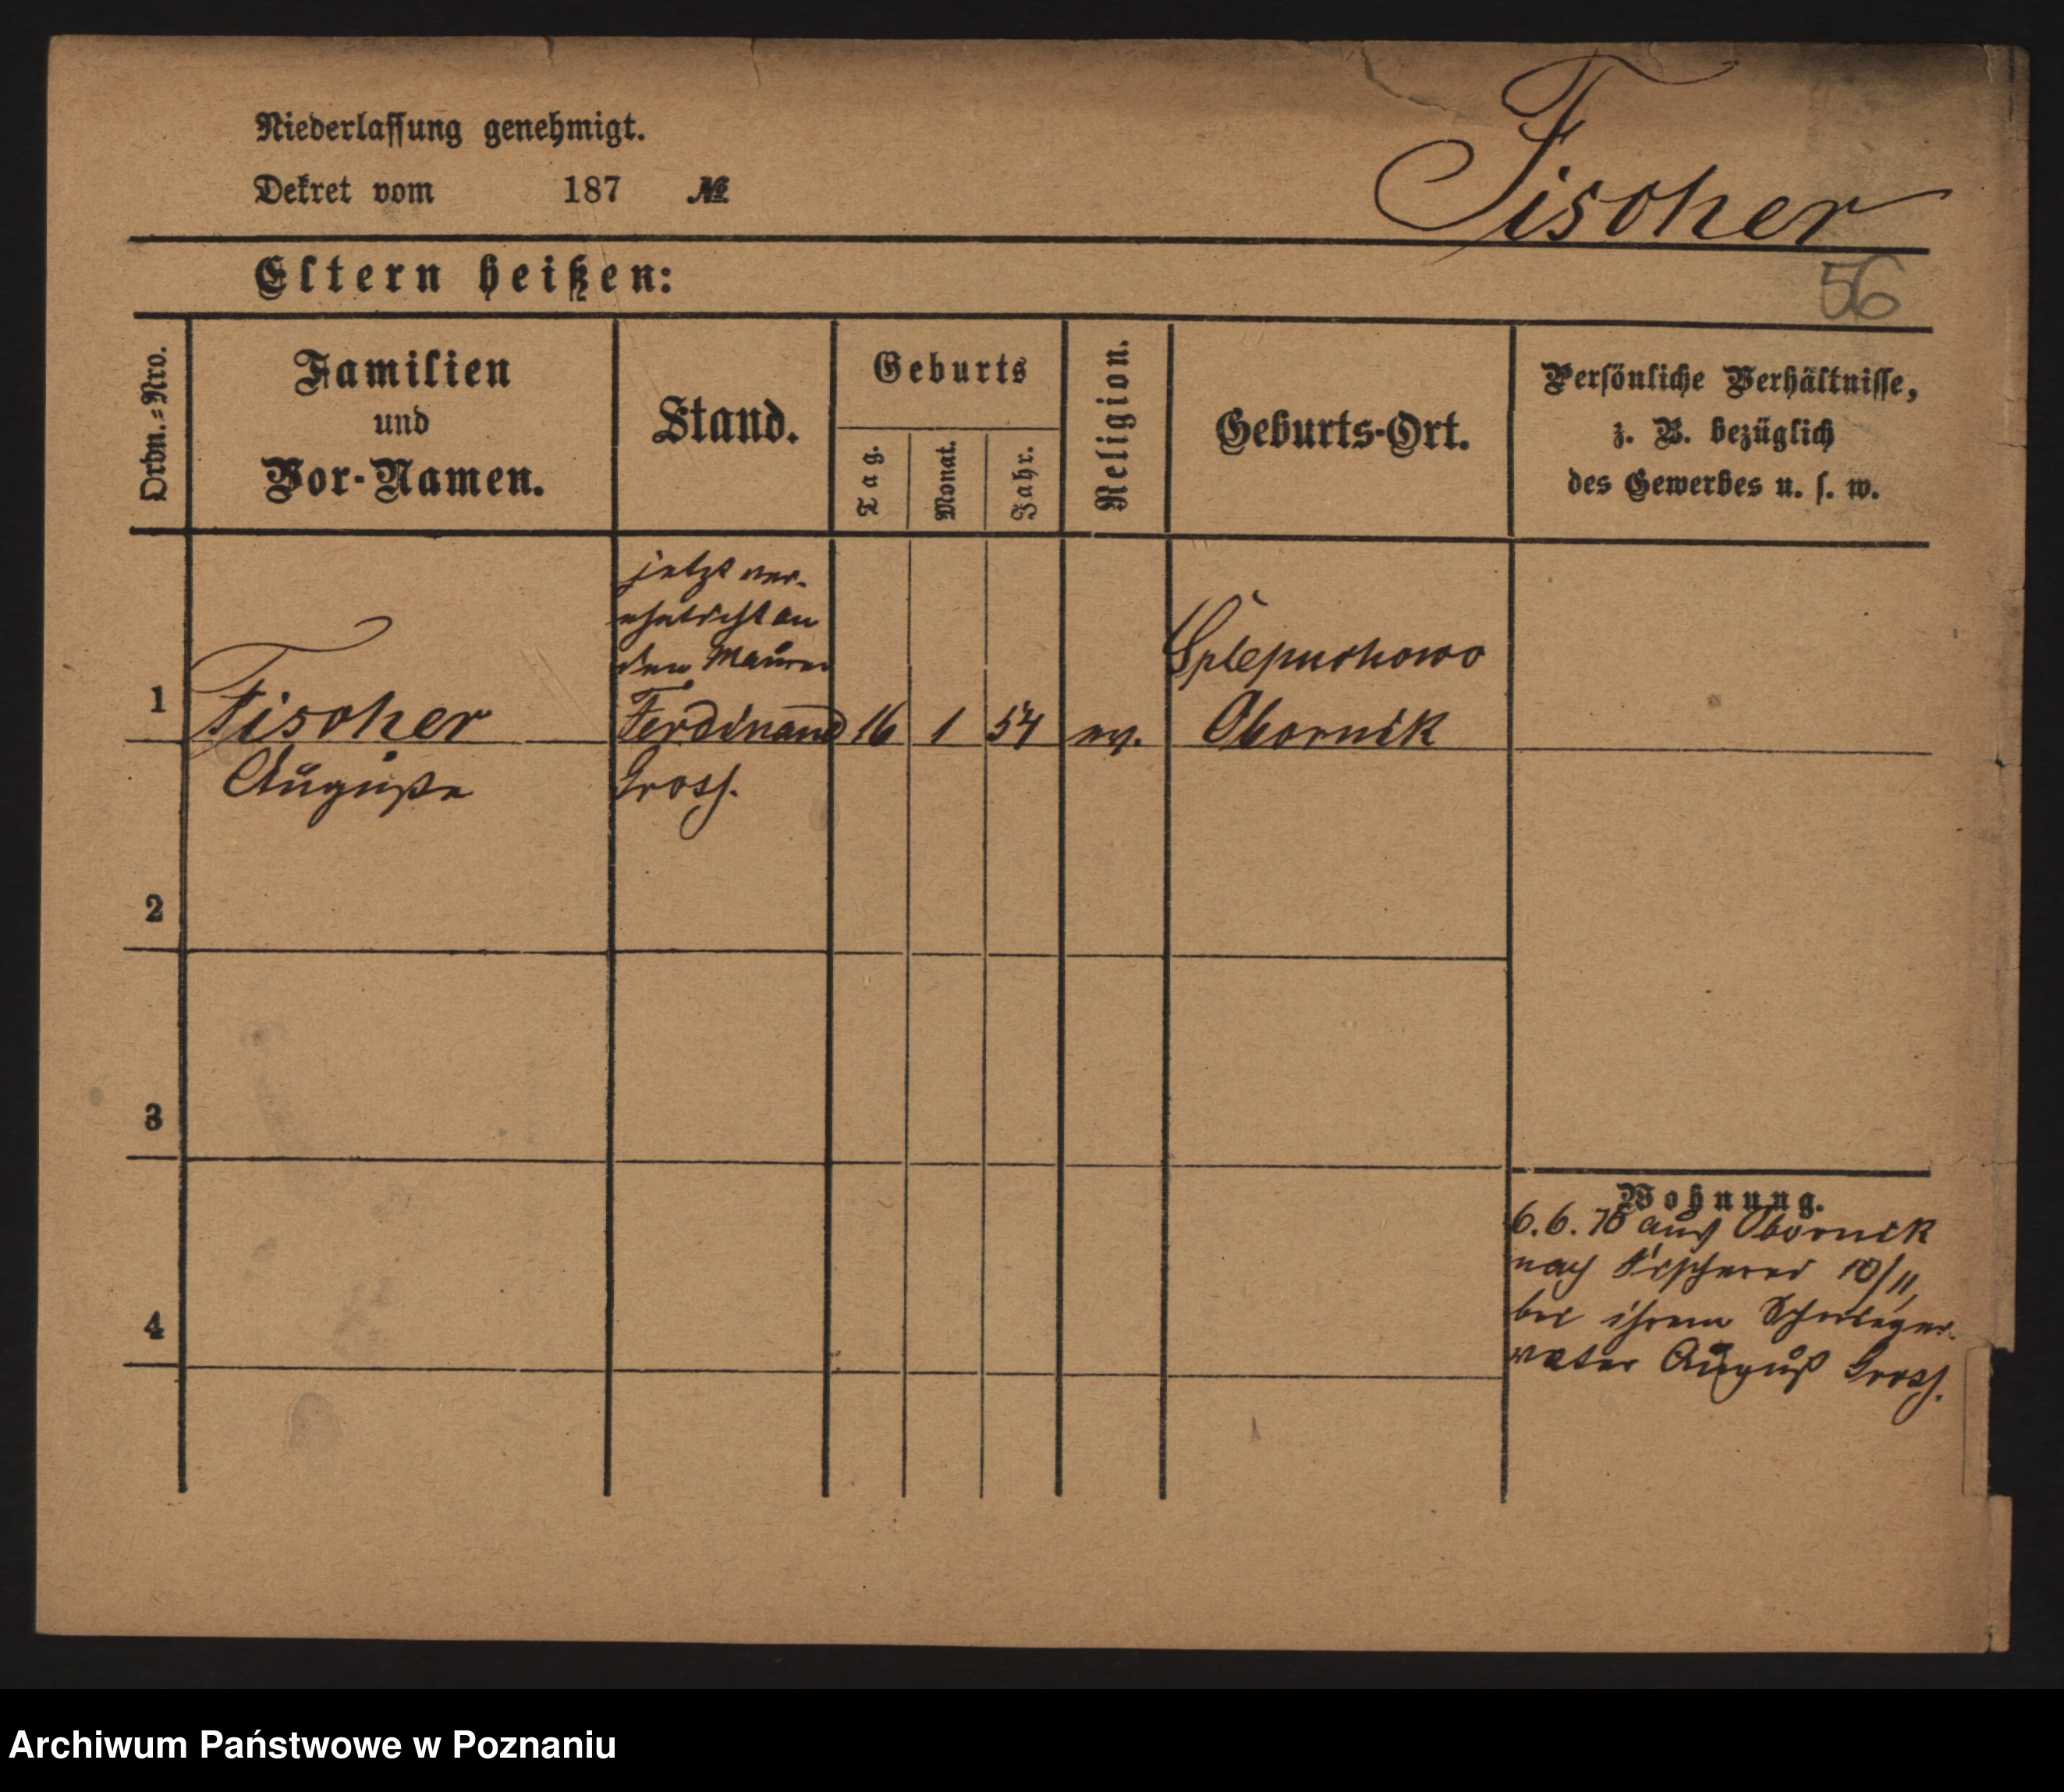 Niederlassung genehmigt.
Dekret vom 187 №
Fischer
Eltern heißen:
56
Ordn.=Nro.
Familien
und
Vor-Namen.
Stand.
Geburts
Tag.
Monat.
Jahr.
Religion.
Geburts-Ort.
Persönliche Verhältnisse,
z. B. bezüglich
des Gewerbes u. s. w.
jetzt ver-
ehelicht an
den Maurer
1 Fischer Ferdinand 16 1 54 ev. Obornik
Auguste Gross.
2
3
4
Wohnung.
6. 6. 76 aus Obornik
nach Fischerei 10/11,
bei ihrem Schwieger-
vater August Gross.
Archiwum Państwowe w Poznaniu